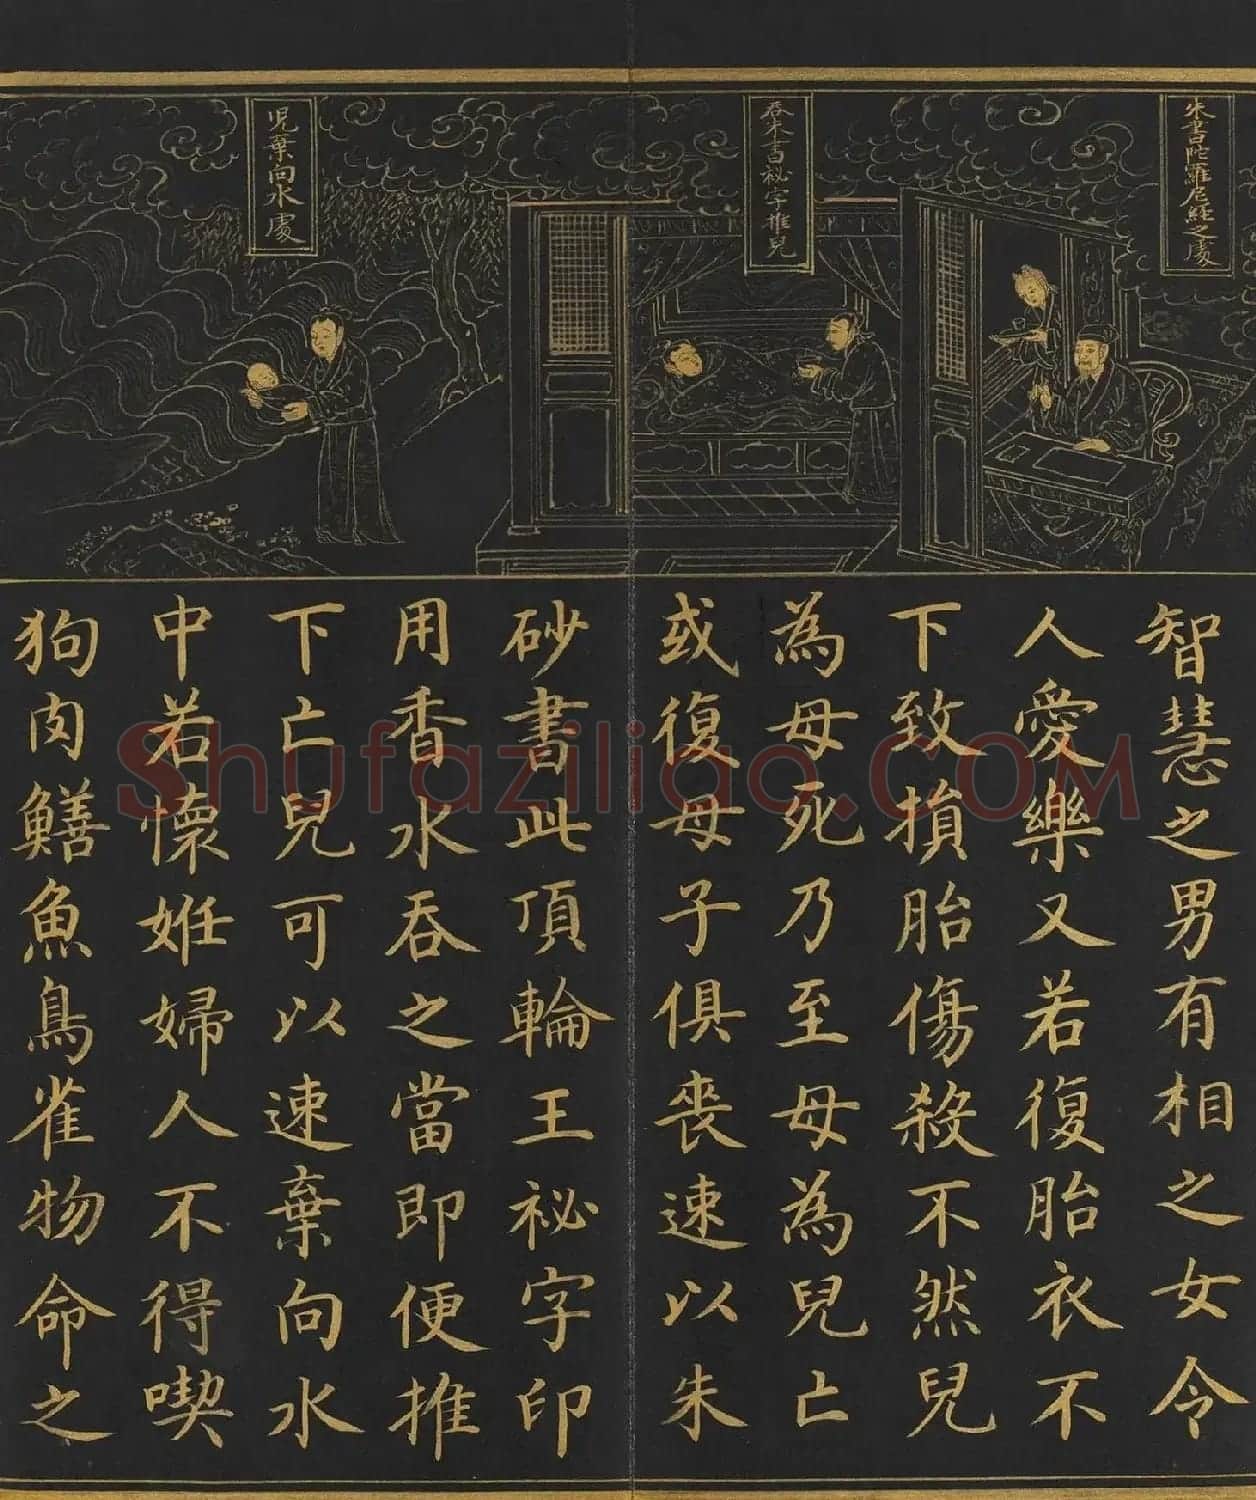 朱書陀羅尼經之處
吞朱書秘字推兒
児棄向水處
智慧之男有相之女令
人愛樂又若復胎衣不
下致損胎傷殺不然兒
為母死乃至母為兒亡
或復母子俱喪速以朱
砂書此頂輪王祕字印
用香水吞之當即便推
下亡兒可以速棄向水
中若懷姙婦人不得喫
狗肉鱔魚鳥雀物命之
Shufaziliao.COM